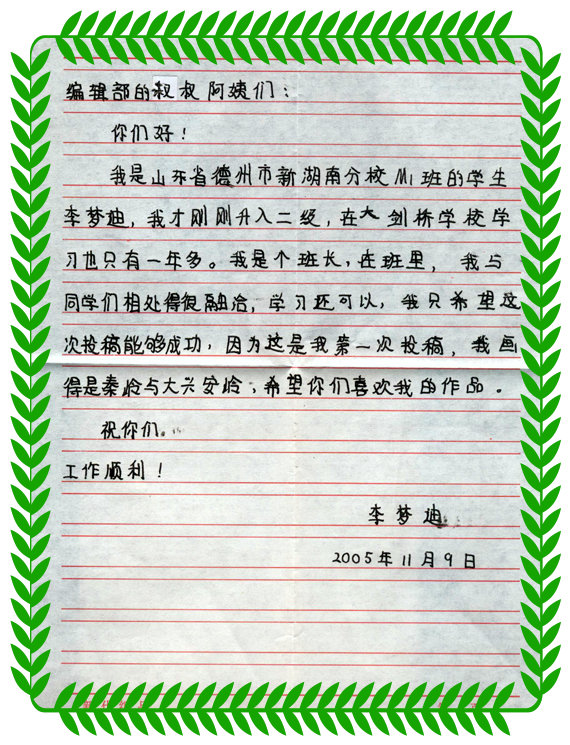 编辑部的叔叔阿姨们：
你们好！
我是山东省德州市新湖南分校M1班的学生
李梦迪，我才刚刚升入二级，在大剑桥学校学
习也只有一年多。我是个班长，在班里，我与
同学们相处得很融洽，学习还可以，我只希望这
次投稿能够成功，因为这是我第一次投稿，我画
得是秦岭与大兴安岭，希望你们喜欢我的作品。
祝你们。
工作顺利！
李梦迪
2005年11月9日